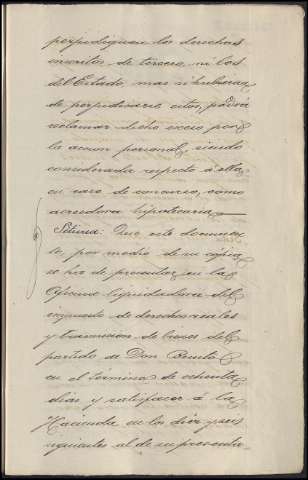 perjudiquen los derechos
inscritos de tercero, ni los
del Estado, mas si hubieran
de perjudicarse estos, podrá
reclamar dicho exceso por
la accion personal, siendo
considerada respecto á ella
en caso de concurso, como
acreedora hipotecaria.
Sétima: Que este documen-
to, por medio de su copia
se há de presentar en la
Oficina liquidadora del
impuesto de derechos reales
y trasmision de bienes del
partido de Don Benito
en el término de ochenta
dias y satisfacer á la
Hacienda en los diez y seis
siguientes al de su presenta-